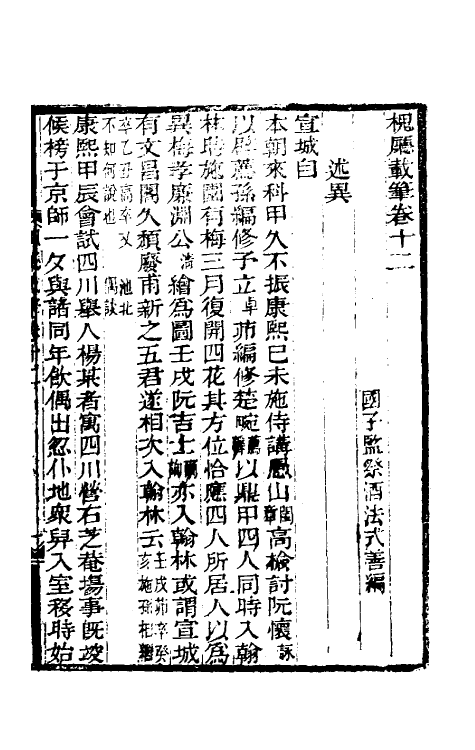 槐廳載筆卷十二
國子監祭酒法式善編
述異
宣城自
本朝來科甲久不振康熙己未施侍講愚山閏章高檢討阮懷詠
以鼎薦孫編修予立卓茆編修楚畹薦馨以鼎甲四人同時入翰
林時施園有梅三月復開四花其方位恰應四人所居人以為
異梅孝廉淵公清繪為圖壬戌阮吉士爾詢亦入翰林或謂宣城
有文昌閣久頹廢甫新之五君遂相次入翰林云壬戌茆卒癸亥施孫相繼
卒乙丑高卒又不知何說也 池北偶談
康熙甲辰會試四川舉人楊某者寓四川營右芝菴場事既竣
候榜于京師一夕與諸同年飲偶出忽仆地衆舁入室移時始